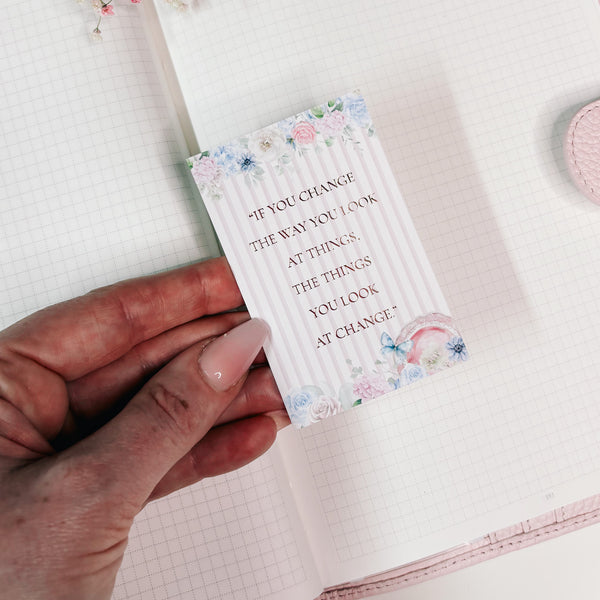 “IF YOU CHANGE
THE WAY YOU LOOK
AT THINGS,
THE THINGS
YOU LOOK
AT CHANGE.”